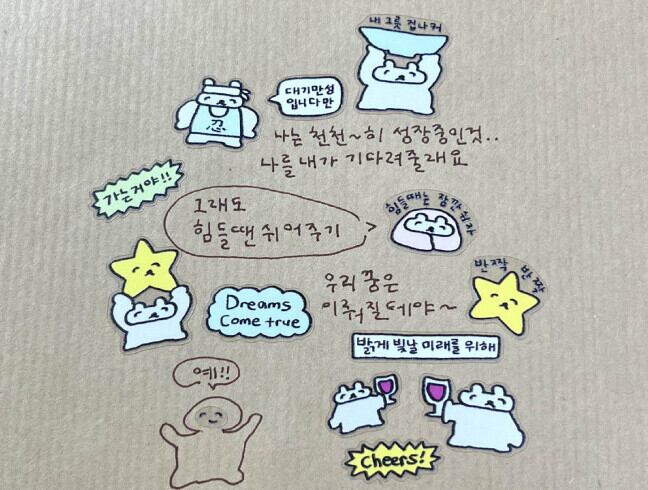 내 그릇 겁나 커
대기만성
입니다만
忍
나는 천천~히 성장중인것..
나를 내가 기다려줄래요
가는거야!!
그래도
힘들땐 쉬어주기
힘들때는 잠깐 쉬자
반짝 반짝
우리 꿈은
이뤄질테야~
Dreams
Come true
밝게 빛날 미래를 위해
예!!
Cheers!